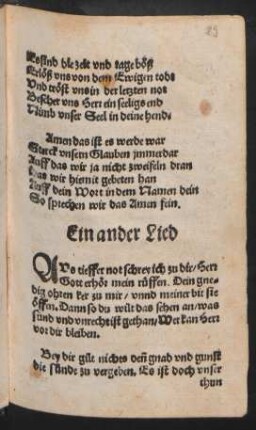 25
Es sind die zeit vnd tage böß
Erlöß vns von dem Ewigen tods
Vnd tröst vns in der letzten not
Bescher vns Herr ein seeligs end
Nimb vnser Seel in deine hend.
Amen das ist es werde war
Sterck vnsern Glauben jmmerdar
Auff das wir ja nicht zweifeln dran
Das wir hiemit gebeten han
Auff dein Wort in dem Namen dein
So sprechen wir das Amen fein.
Ein ander Lied
AVs tieffer not schrey ich zu dir/ Herr
Gott erhör mein rüffen. Dein gne⸗
dig ohren ker zu mir/ vnnd meiner bit sie
öffen. Dann so du wilt das sehen an/ was
sünd vnd vnrecht ist gethan/ Wer kan Herr
vor dir bleiben.
Bey dir gilt nichts deñ gnad vnd gunst
die sünde zu vergeben. Es ist doch vnser
thun